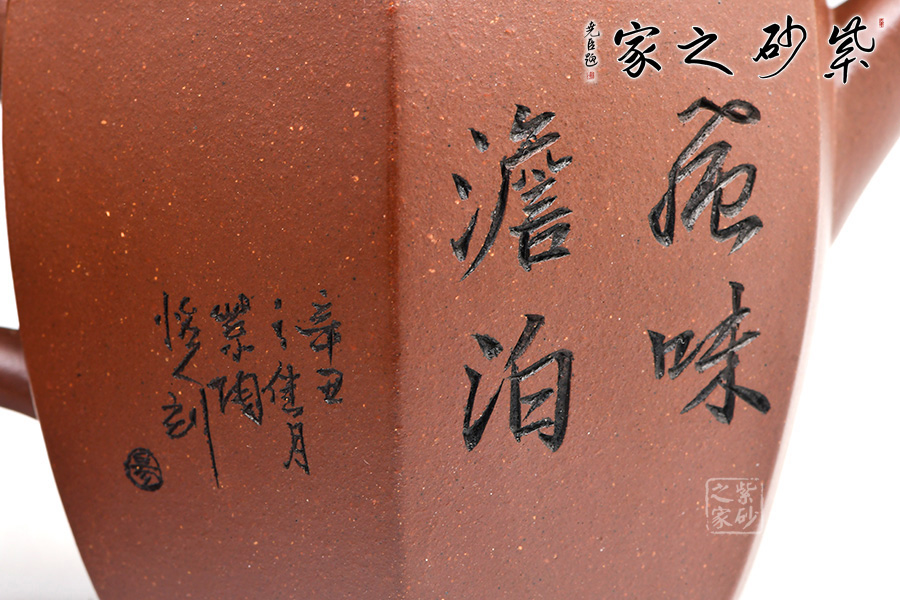 紫砂之家
尧臣题
味
澹泊
辛丑
之佳月
紫陶
人刻
紫砂
之家